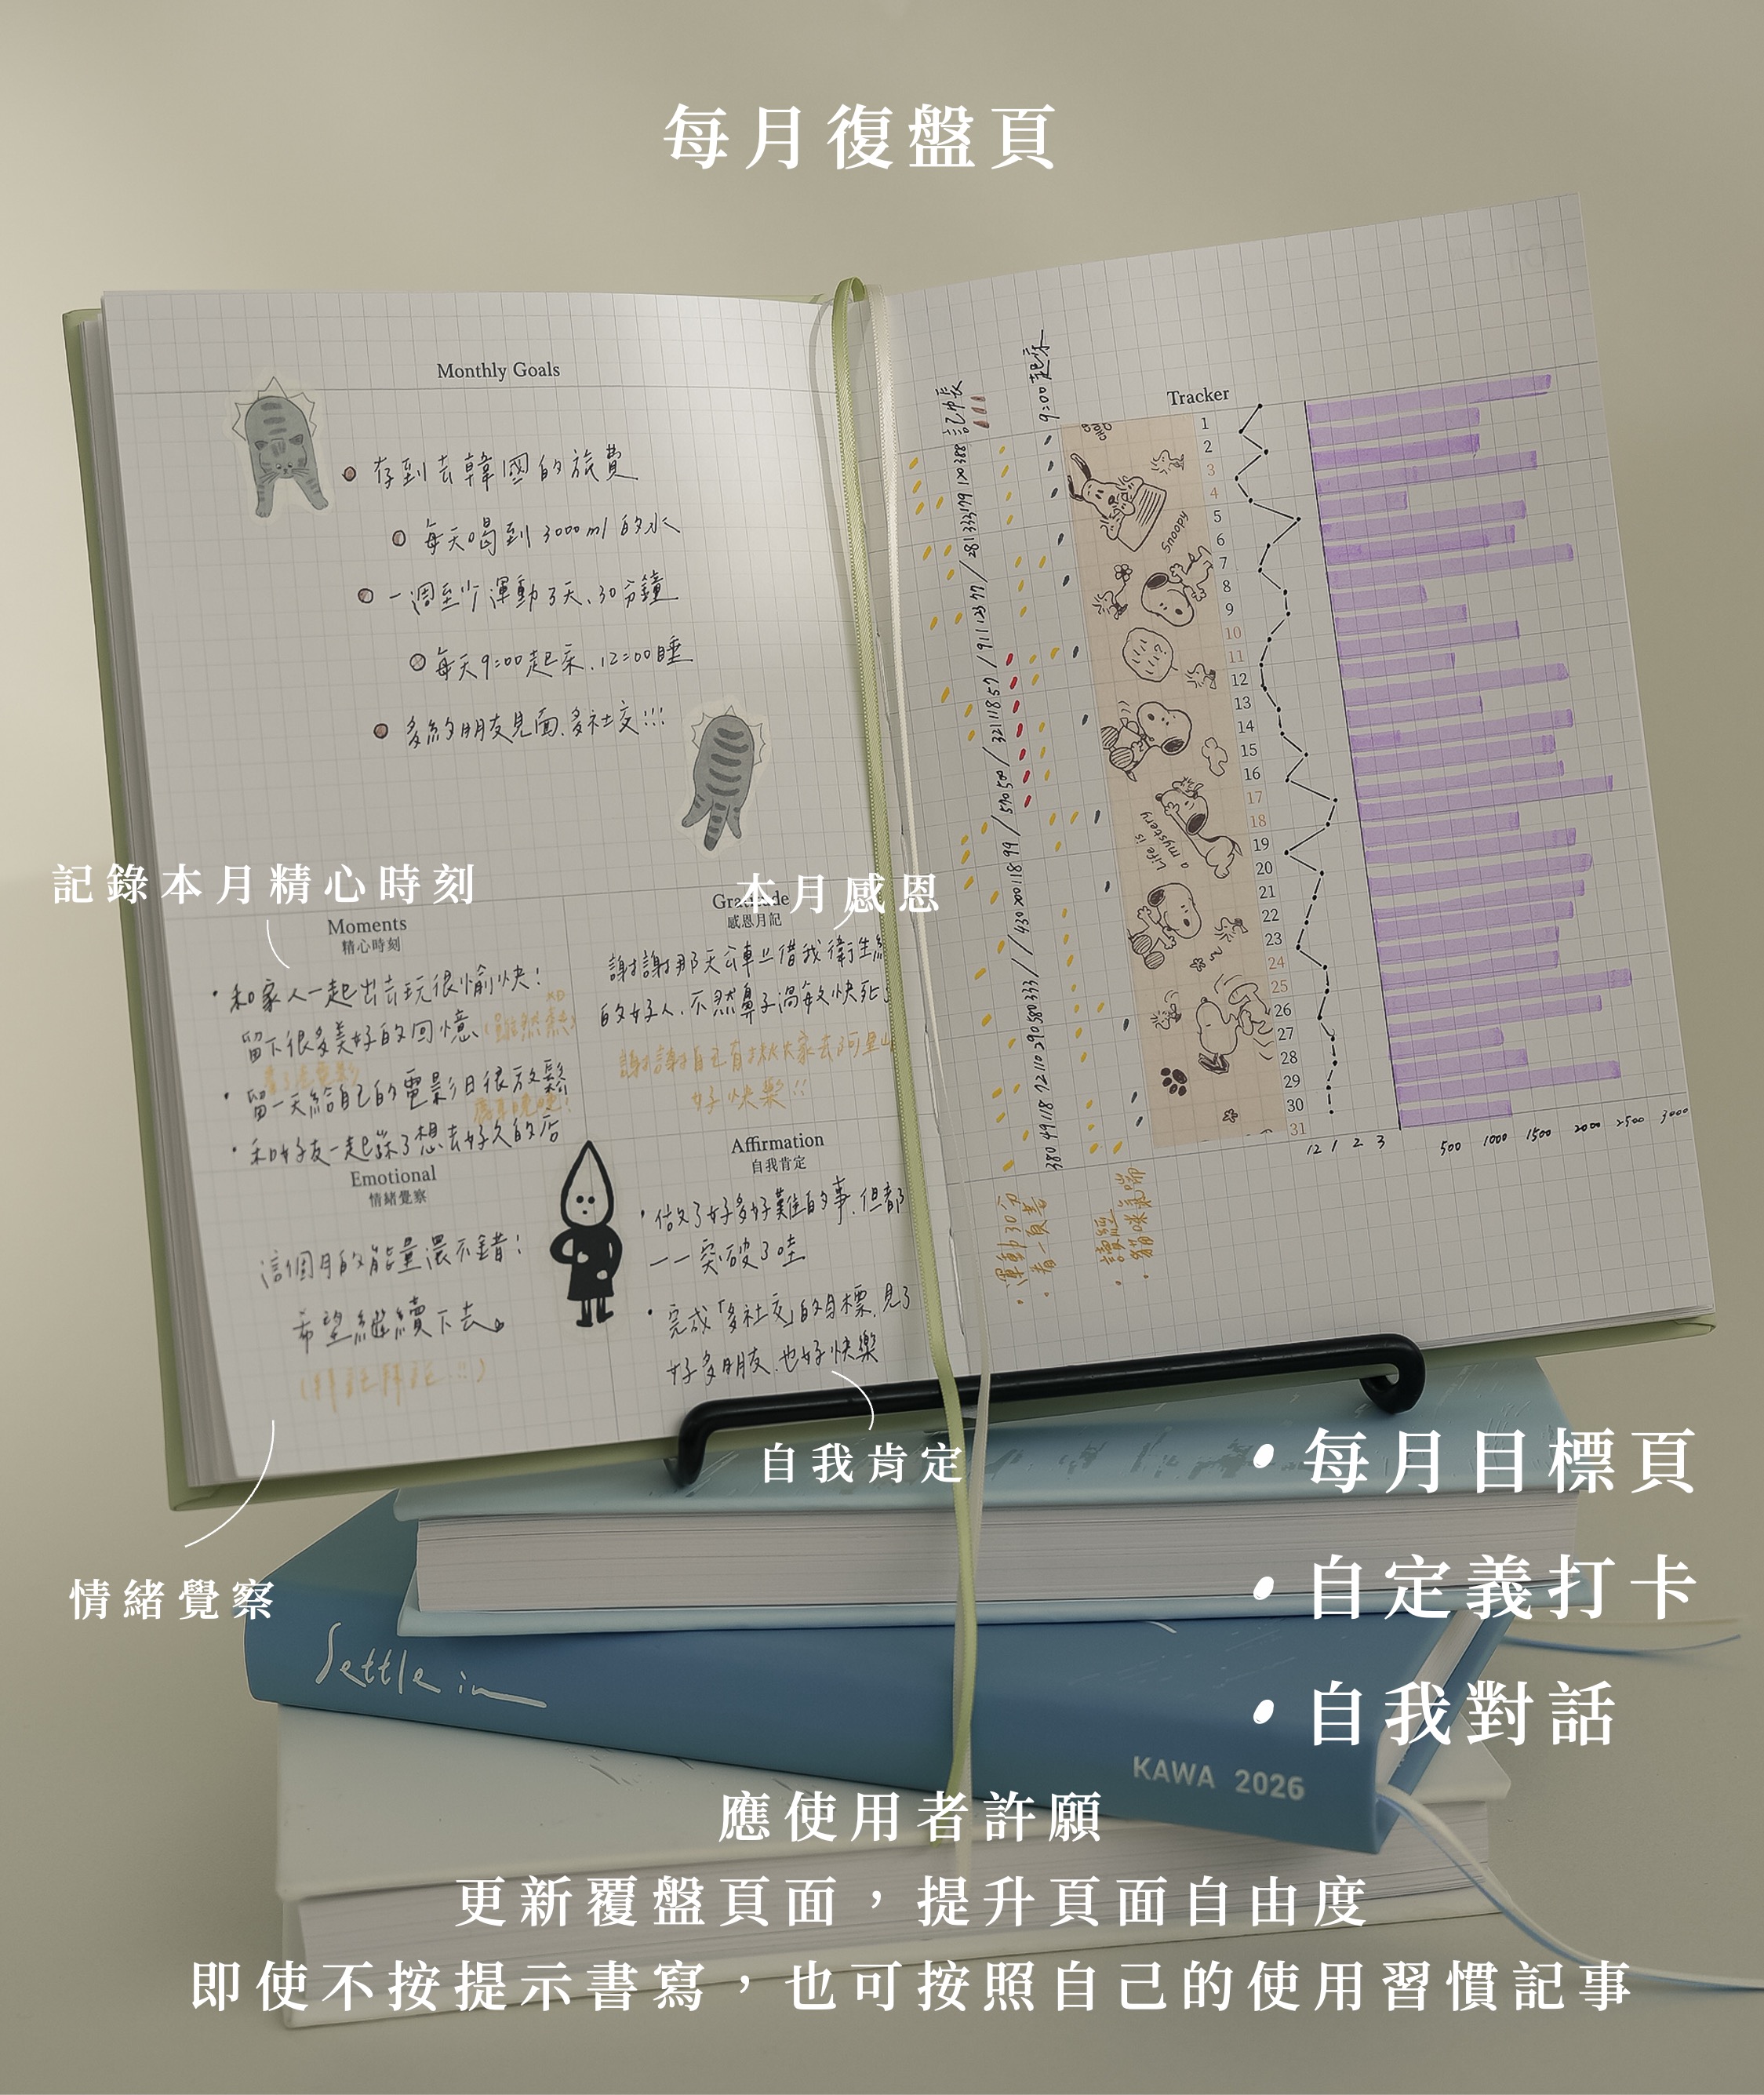 每月復盤頁
Monthly Goals
存到去韓國的旅費
每天喝到3000ml的水
一週至少運動3天、30分鐘
每天9:00起床、12:00睡
多約朋友見面、多社交!!!
記錄本月精心時刻
本月感恩
Moments
精心時刻
和家人一起出去玩很愉快!
留下很多美好的回憶
(雖然熱)
留一天給自己的電影日很放鬆
和好友一起踩了想去好久的店
Gratitude
感恩月記
謝謝那天公車上借我衛生紙
的好人、不然鼻子過敏快死
謝謝自己有揪大家去阿里山
好快樂!!
Emotional
情緒覺察
這個月的能量還不錯!
希望繼續下去
(拜託拜託!!)
Affirmation
自我肯定
做了好多好難的事、但都
一一突破了哇
完成「多社交」的目標、見了
好多朋友、也好快樂
自我肯定
情緒覺察
記帳
9:00起床
Tracker
1
2
3
4
5
6
7
8
9
10
11
12
13
14
15
16
17
18
19
20
21
22
23
24
25
26
27
28
29
30
31
Snoopy
Life is
a mystery
12 1 2 3
500 1000 1500 2000 2500 3000
運動30分
看一頁書
讀經
每月目標頁
自定義打卡
自我對話
Settle in
KAWA 2026
應使用者許願
更新覆盤頁面，提升頁面自由度
即使不按提示書寫，也可按照自己的使用習慣記事